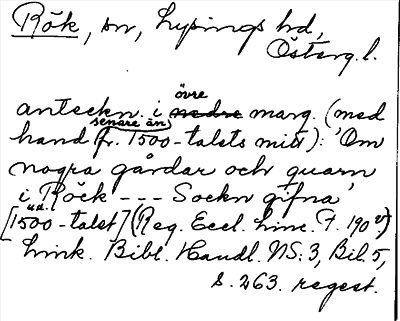 Rök, sn, Lysings hd,
Österg. l.
övre
anteckn. i nedre marg. (med
senare än
hand fr. 1500-talets mitt): 'Om
nogra gårdar och quarn
i Röck --- Sockn gifna'
u.d.
[1500-talet] (Reg. Eccl. Linc. F. 190 v)
Link. Bibl. Handl. NS: 3, Bil. 5,
s. 263. regest.